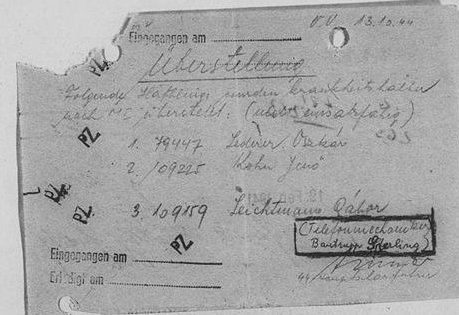 O.U. 13.10.44
Eingegangen am
Überstellung
Folgende Häftlinge wurden krankheitshalber
nach überstellt: (nicht einsatzfähig)
1. 79447 Lederer Oszkár
2. 109225 Kohn Jenö
3. 109159 Leichtmann Gábor
(Telefonmechaniker
Bautrupp Sperling)
Eingegangen am
Erledigt am
PZ
PZ
PZ
PZ
PZ